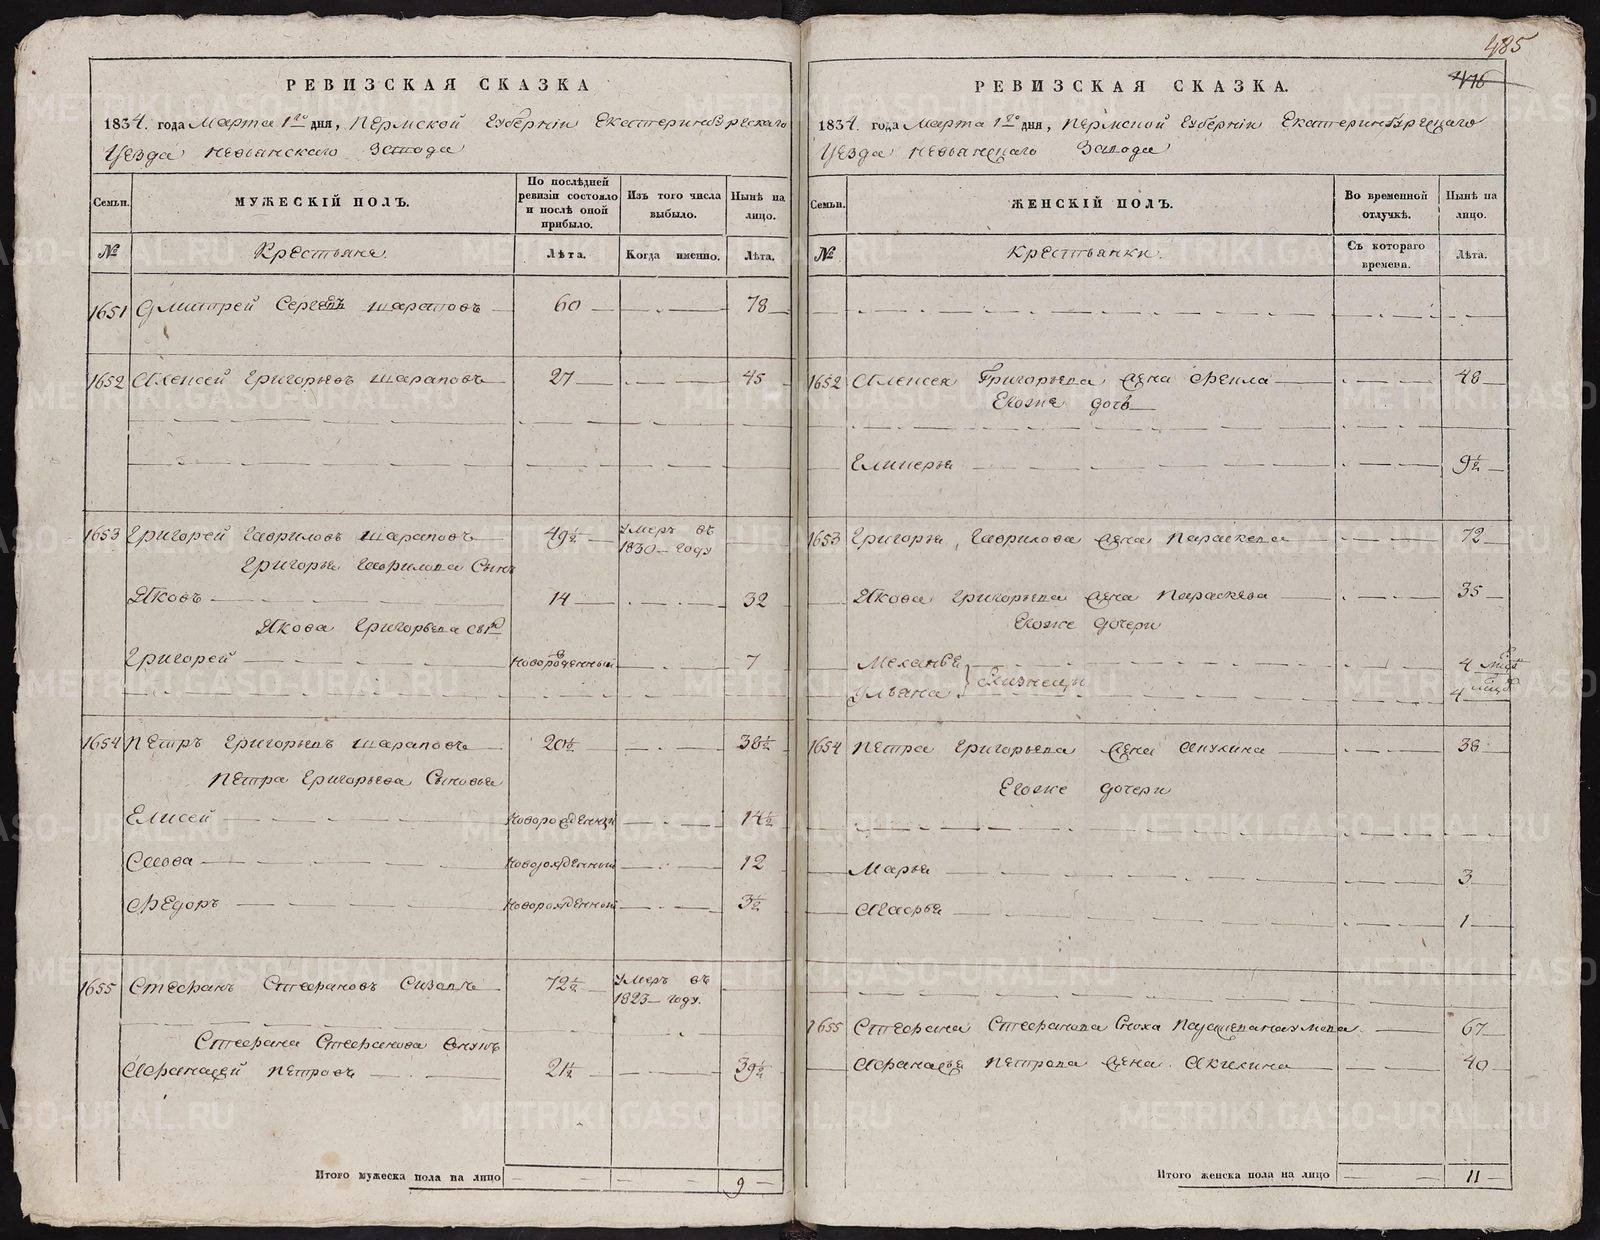 485
476
РЕВИЗСКАЯ СКАЗКА
1834. года Марта 1го дня, Пермской Губерніи Екатеринбургскаго
Уезда Невьянскаго Завода
Семьи. МУЖЕСКІЙ ПОЛЪ. По послѣдней ревизіи состояло и послѣ оной прибыло. Изъ того числа выбыло. Нынѣ на лицо.
№ Крестьяне. Лѣта. Когда именно. Лѣта.
1651 Дмитрей Сергеевъ Шараповъ 60 78
1652 Алексей Григорьевъ Шараповъ 27 45
1653 Григорей Гавриловъ Шараповъ 49½ умеръ въ 1830 году
Григорья Гаврилова Сынъ
Яковъ 14 32
Якова Григорьева сынъ
Григорей новорожденный 7
1654 Петръ Григорьевъ Шараповъ 20½ 38½
Петра Григорьева Сыновья
Елисей новорожденный 14½
Савва новорожденный 12
Федоръ новорожденный 3½
1655 Стефанъ Стефановъ Сизовъ 72½ умеръ въ 1823 году.
Стефана Стефанова внукъ
Афанасей Петровъ 21½ 39½
Итого мужеска пола на лицо 9
РЕВИЗСКАЯ СКАЗКА.
1834. года Марта 1го дня, Пермской Губерніи Екатеринбургскаго
Уезда Невьянскаго Завода
Семьи. ЖЕНСКІЙ ПОЛЪ. Во временной отлучкѣ. Нынѣ на лицо.
№ Крестьянки. Съ котораго времени. Лѣта.
1652 Алексея Григорьева жена Фекла 48
Екоже дочь
Гликерья 9½
1653 Григорья Гаврилова жена Параскева 72
Якова Григорьева жена Параскева 35
Екоже дочери
Меланья 4
Ульяна } близнецы 4
1654 Петра Григорьева жена Акулина 38
Екоже дочери
Марья 3
Агафья 1
1655 Стефана Стефанова Сноха 67
Афанасья Петрова жена Акилина 40
Итого женска пола на лицо 11
METRIKI.GASO-URAL.RU